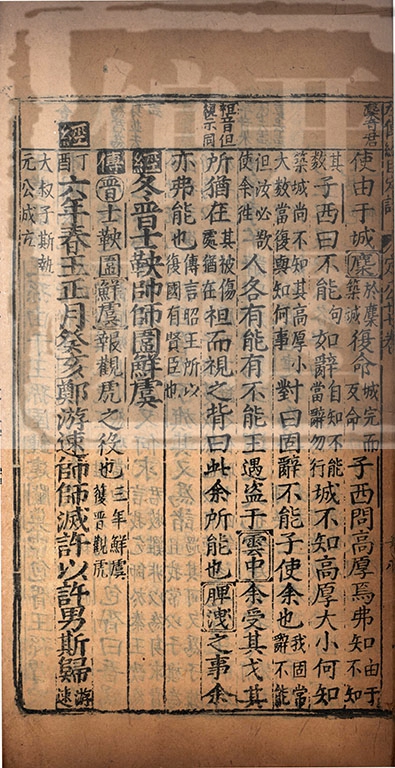 麇音君
使由于城麇於麇築城復命城完而反命子西問高厚焉弗知由于不知
其數子西曰不能句如辭自知不能當辭勿行城不知高厚大小何知
築城尚不知其高厚小大數當復與知何事對曰固辭不能子使余也我固當辭不能
但汝必欺使余往人各有能有不能王遇盜于雲中余受其戈其
袒音但視示同
所猶在其被傷處猶在袒而視之背曰此余所能也脾洩之事余
亦弗能也傳言昭王所以復國有賢臣也
經冬晉士鞅帥師圍鮮虞
傳晉士鞅圍鮮虞報觀虎之役也三年鮮虞獲晉觀虎
經丁酉六年春王正月癸亥鄭游速帥師滅許以許男斯歸游速
大叔子斯執元公成